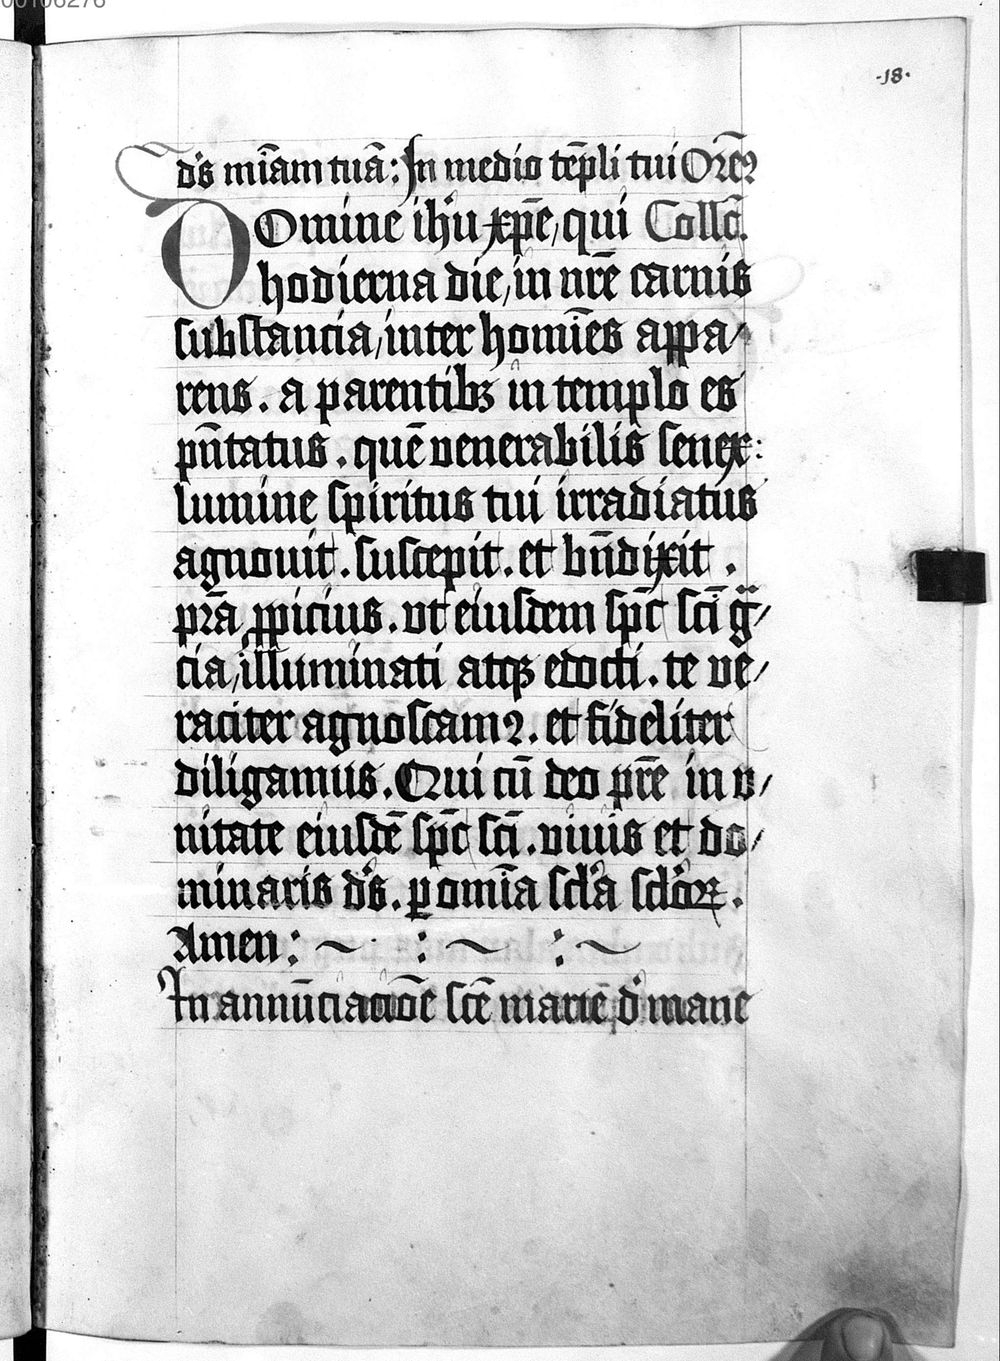 00106276
·18·
dn̄s mīam tuā: In medio tēpli tui Orem9
DOmine ih̄u xp̄e, qui Collc̄.
hodierna die, in nr̄e carnis
substancia, inter homīes appa/
rens. a parentibꝫ in templo es
pn̄tatus. quē venerabilis senex:
lumine spiritus tui irradiatus
agnouit. suscepit. et bn̄dixit.
pr̄a ꝓpicius. vt eiusdem sp̄c sc̄i gͣ/
cia, illuminati atqꝫ edocti. te ve/
raciter agnoscam9. et fideliter
diligamus. Qui cū deo pr̄e in v/
nitate eiusdē sp̄c sc̄i. viuis et do/
minaris d's. ꝑ omīa scl'a scl'oꝝ.
Amen: ~ · : ~ : ~
In annūciacōe sc̄e marie d' mane